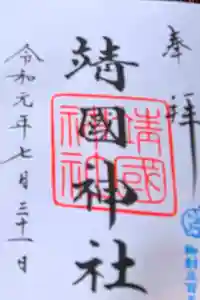 奉拝
靖國神社
令和元年七月三十一日